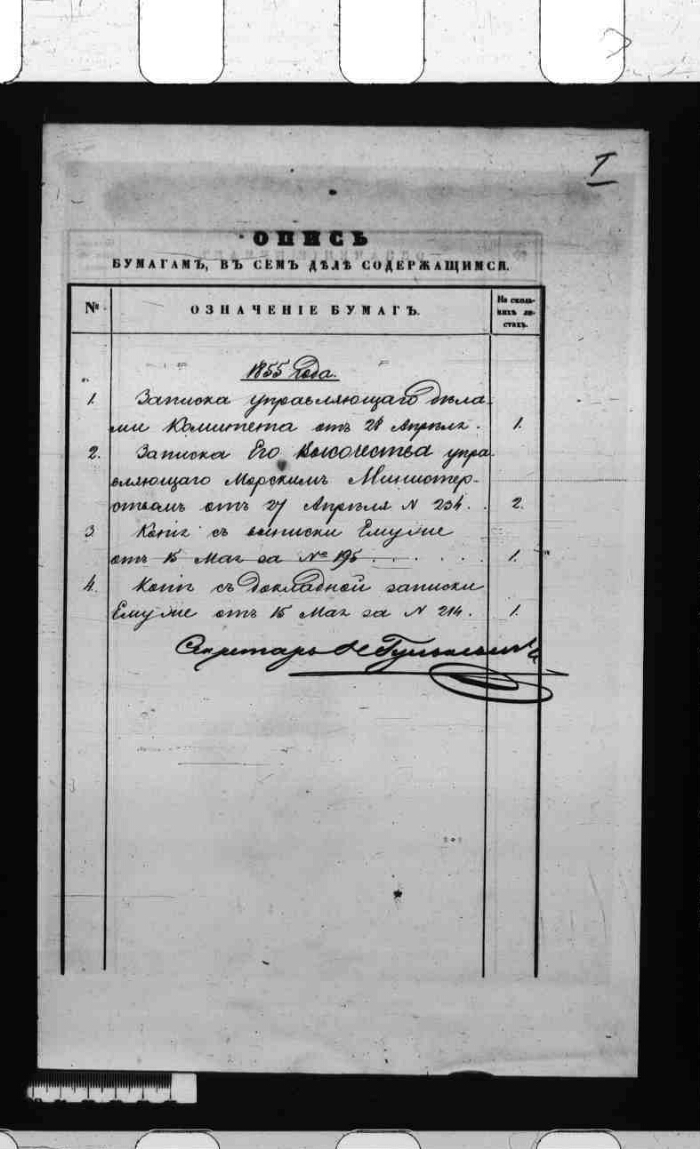 I
ОПИСЬ
БУМАГАМЪ, ВЪ СЕМЪ ДѢЛѢ СОДЕРЖАЩИМСЯ.
№ ОЗНАЧЕНІЕ БУМАГЪ. На сколь-
кихъ ли-
стахъ.
1855 года.
1. Записка управляющаго дѣла-
ми Комитета отъ 28 Апрѣля. 1.
2. Записка Его Высочества упра-
вляющаго Морскимъ Министер-
ствомъ отъ 27 Апрѣля N 234. 2.
3. Копія съ выписки Ему же
отъ 15 Мая за № 195 1.
4. Копія съ докладной записки
Ему же отъ 15 Мая за N 214. 1.
Секретарь